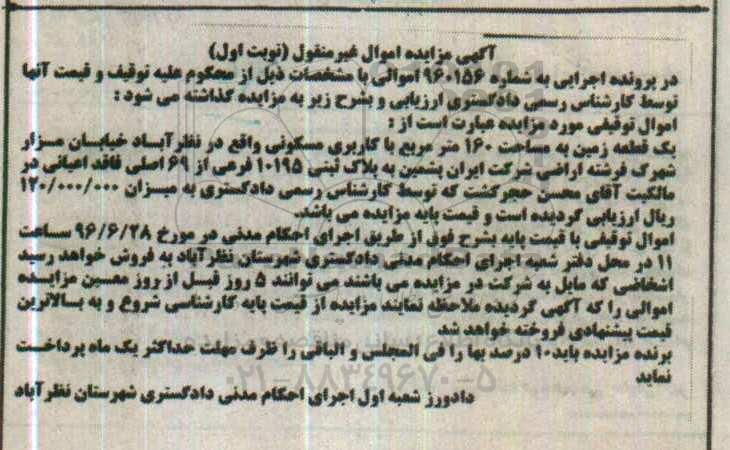 آگهی مزایده اموال غیرمنقول (نوبت اول)
در پرونده اجرایی به شماره ۹۶۰۱۵۶ اموالی با مشخصات ذیل از محکوم علیه توقیف و قیمت آنها
توسط کارشناس رسمی دادگستری ارزیابی و بشرح زیر به مزایده گذاشته می شود :
اموال توقیفی مورد مزایده عبارت است از :
یک قطعه زمین به مساحت ۱۶۰ متر مربع با کاربری مسکونی واقع در نظرآباد خیابان مزار
شهرک فرشته اراضی شرکت ایران پشمین به پلاک ثبتی ۱۰۱۹۵ فرعی از ۶۹ اصلی فاقد اعیانی در
مالکیت آقای محسن حجرگشت که توسط کارشناس رسمی دادگستری به میزان ۱۲۰/۰۰۰/۰۰۰
ریال ارزیابی گردیده است و قیمت پایه مزایده می باشد.
اموال توقیفی با قیمت پایه بشرح فوق از طریق اجرای احکام مدنی در مورخ ۹۶/۶/۲۸ ساعت
۱۱ در محل دفتر شعبه اجرای احکام مدنی دادگستری شهرستان نظرآباد به فروش خواهد رسید
اشخاصی که مایل به شرکت در مزایده می باشند می توانند ۵ روز قبل از روز معین مزایده
اموالی را که آگهی گردیده ملاحظه نمایند مزایده از قیمت پایه کارشناسی شروع و به بالاترین
قیمت پیشنهادی فروخته خواهد شد
برنده مزایده باید۱۰ درصد بها را فی المجلس و الباقی را ظرف مهلت حداکثر یک ماه پرداخت
نماید
دادورز شعبه اول اجرای احکام مدنی دادگستری شهرستان نظرآباد
۰۲۱-۸۸۳۴۹۶۷۰-۵